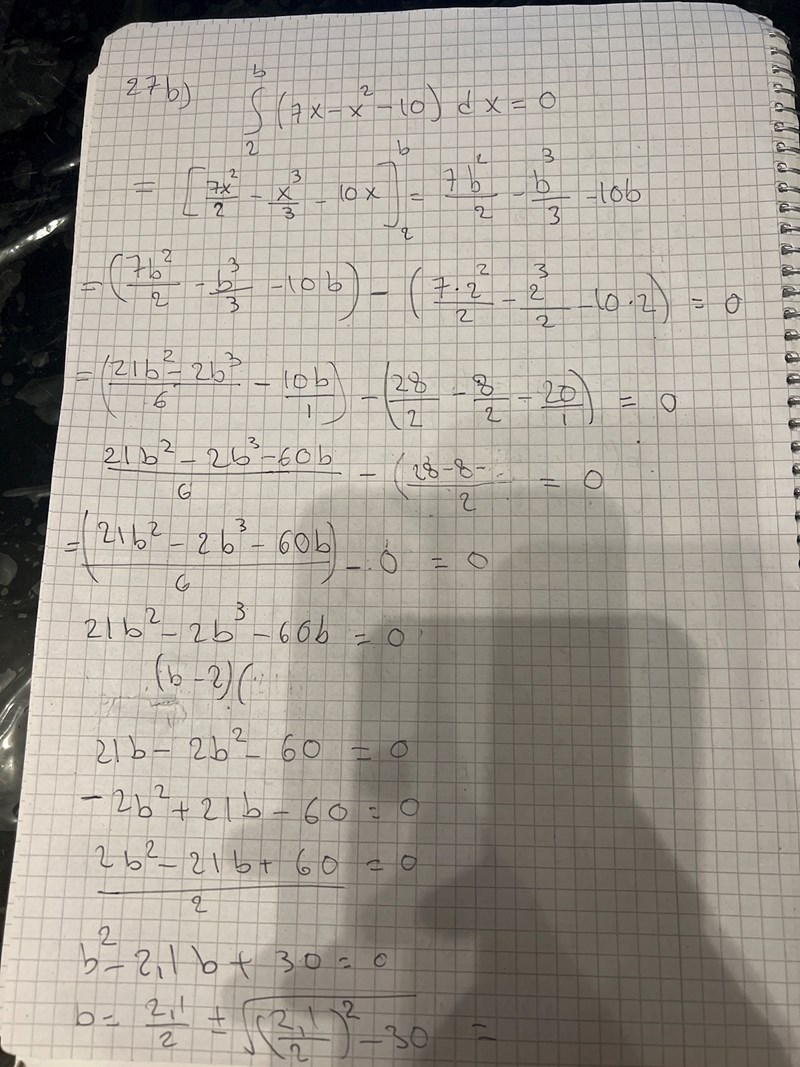 27b) ∫₂ᵇ (7x - x² - 10) dx = 0
= [7x²/2 - x³/3 - 10x]₂ᵇ = 7b²/2 - b³/3 - 10b
= (7b²/2 - b³/3 - 10b) - (7·2²/2 - 2³/2 - 10·2) = 0
= ((21b² - 2b³)/6 - 10b/1) - (28/2 - 8/2 - 20/1) = 0
(21b² - 2b³ - 60b)/6 - ((28 - 8 - ... /2 = 0
= ((21b² - 2b³ - 60b)/6) - 0 = 0
21b² - 2b³ - 60b = 0
(b - 2)(
21b - 2b² - 60 = 0
-2b² + 21b - 60 = 0
(2b² - 21b + 60)/2 = 0
b² - 2,1b + 30 = 0
b = 2,1/2 ± √((2,1/2)² - 30) =